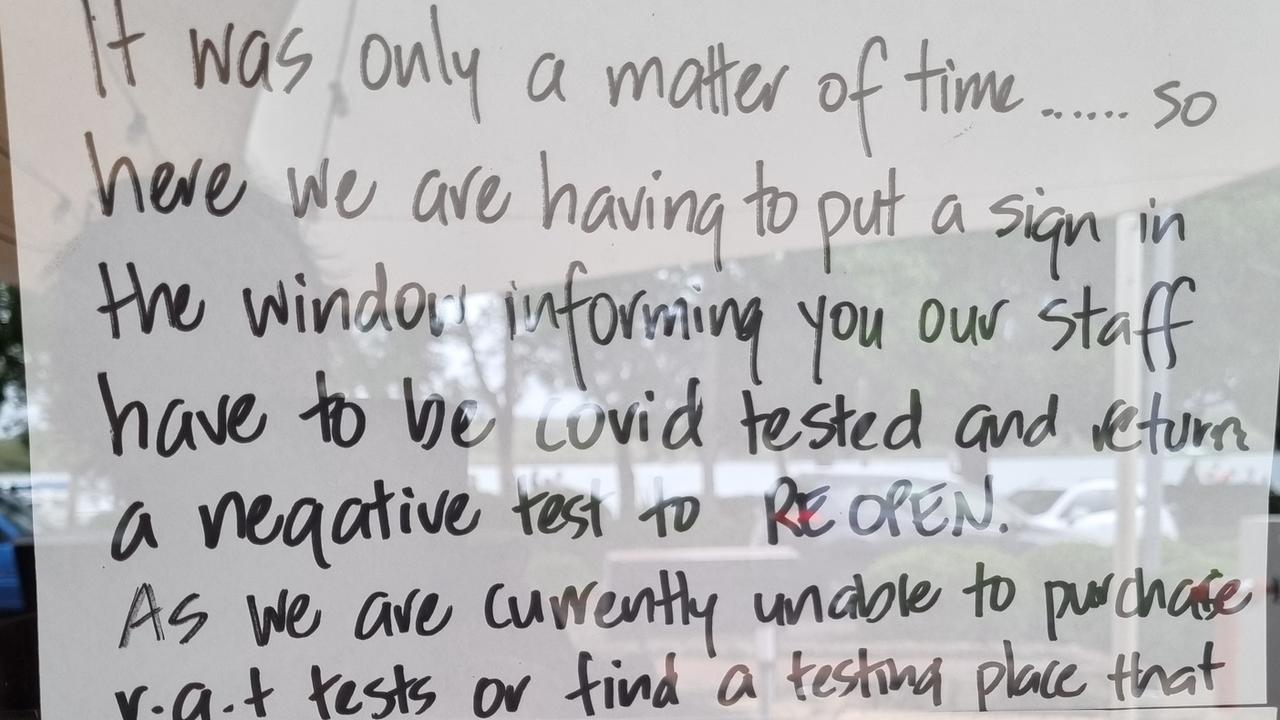 It was only a matter of time...... so
here we are having to put a sign in
the window informing you our staff
have to be covid tested and return
a negative test to REOPEN.
As we are currently unable to purchase
r.a.t tests or find a testing place that